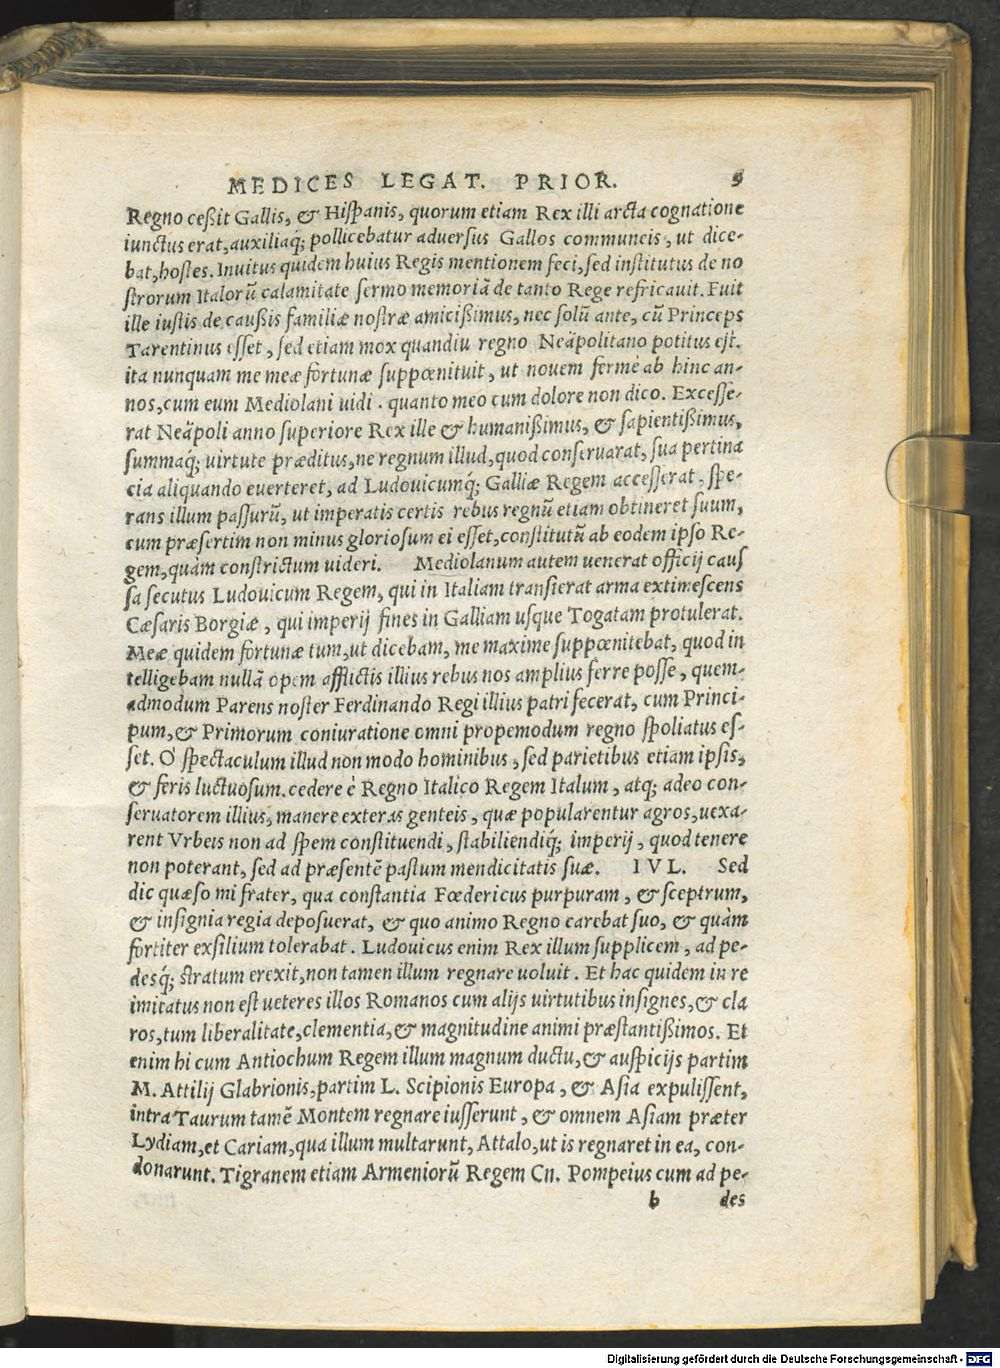 MEDICES LEGAT. PRIOR. 9
Regno ceßit Gallis, & Hiſpanis, quorum etiam Rex illi arcta cognatione
iunctus erat, auxiliaq́; pollicebatur aduerſus Gallos communeis, ut dice-
bat, hoſtes. Inuitus quidem huius Regis mentionem feci, ſed inſtitutus de no
ſtrorum Italorũ calamitate ſermo memoriã de tanto Rege refricauit. Fuit
ille iuſtis de cauſſis familiæ noſtræ amicißimus, nec ſolũ ante, cũ Princeps
Tarentinus eſſet, ſed etiam mox quandiu regno Neäpolitano potitus eſt.
ita nunquam me meæ fortunæ ſuppœnituit, ut nouem fermè ab hinc an-
nos, cum eum Mediolani uidi. quanto meo cum dolore non dico. Exceſſe-
rat Neäpoli anno ſuperiore Rex ille & humanißimus, & ſapientißimus,
ſummaq́; uirtute præditus, ne regnum illud, quod conſeruarat, ſua pertina
cia aliquando euerteret, ad Ludouicumq́; Galliæ Regem acceſſerat, ſpe-
rans illum paſſurũ, ut imperatis certis rebus regnũ etiam obtineret ſuum,
cum præſertim non minus glorioſum ei eſſet, conſtitutũ ab eodem ipſo Re-
gem, quàm conſtrictum uideri. Mediolanum autem uenerat officij cauſ
ſa ſecutus Ludouicum Regem, qui in Italiam tranſierat arma extimeſcens
Cæſaris Borgiæ, qui imperij fines in Galliam uſque Togatam protulerat.
Meæ quidem fortunæ tum, ut dicebam, me maxime ſuppœnitebat, quod in
telligebam nullã opem afflictis illius rebus nos amplius ferre poſſe, quem-
admodum Parens noſter Ferdinando Regi illius patri fecerat, cum Princi-
pum, & Primorum coniuratione omni propemodum regno ſpoliatus eſ-
ſet. O ſpectaculum illud non modo hominibus, ſed parietibus etiam ipſis,
& feris luctuoſum. cedere è Regno Italico Regem Italum, atq; adeo con-
ſeruatorem illius, manere exteras genteis, quæ popularentur agros, uexa-
rent Vrbeis non ad ſpem conſtituendi, ſtabiliendiq́; imperij, quod tenere
non poterant, ſed ad præſentẽ paſtum mendicitatis ſuæ. IVL. Sed
dic quæſo mi frater, qua conſtantia Fœdericus purpuram, & ſceptrum,
& inſignia regia depoſuerat, & quo animo Regno carebat ſuo, & quàm
fortiter exſilium tolerabat. Ludouicus enim Rex illum ſupplicem, ad pe-
desq́; ſtratum erexit, non tamen illum regnare uoluit. Et hac quidem in re
imitatus non eſt ueteres illos Romanos cum alijs uirtutibus inſignes, & cla
ros, tum liberalitate, clementia, & magnitudine animi præſtantißimos. Et
enim hi cum Antiochum Regem illum magnum ductu, & auſpicijs partim
M. Attilij Glabrionis, partim L. Scipionis Europa, & Aſia expuliſſent,
intra Taurum tamẽ Montem regnare iuſſerunt, & omnem Aſiam præter
Lydiam, et Cariam, qua illum multarunt, Attalo, ut is regnaret in ea, con-
donarunt. Tigranem etiam Armeniorũ Regem Cn. Pompeius cum ad pe-
b des
Digitalisierung gefördert durch die Deutsche Forschungsgemeinschaft - DFG